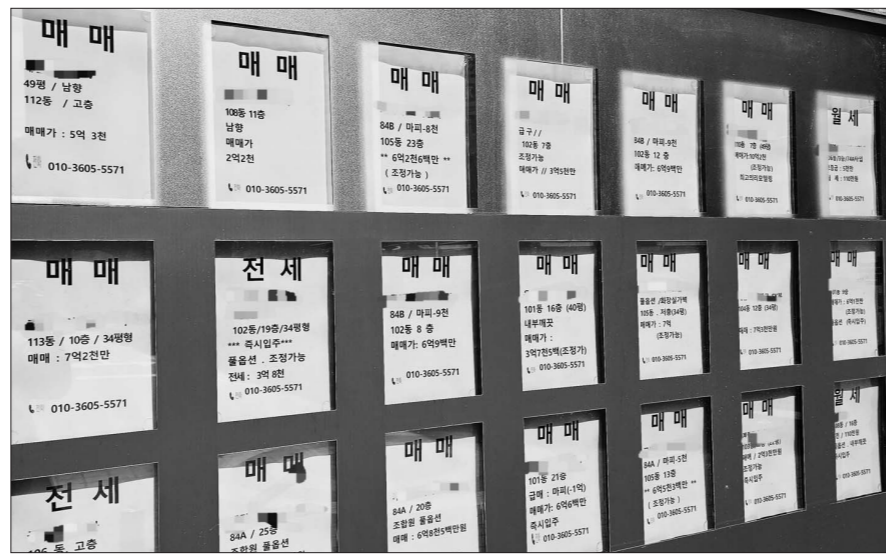 매 매
49평 / 남향
112동 / 고층
매매가 : 5억 3천
010-3605-5571
매 매
108동 11층
남향
매매가
2억2천
010-3605-5571
매 매
84B / 마피-8천
105동 23층
** 6억2천6백만 **
( 조정가능 )
010-3605-5571
매 매
급구//
102동 7층
조정가능
매매가 // 3억5천만
010-3605-5571
매 매
84B / 마피-9천
102동 12 층
매매가: 6억9백만
010-3605-5571
매 매
(조정가능)
010-3605-5571
월 세
010-3605-5571
매 매
113동 / 10층 / 34평형
매매 : 7억2천만
010-3605-5571
전 세
102동/19층/34평형
*** 즉시입주***
풀옵션 . 조정가능
전세: 3억 8천
010-3605-5571
매 매
84B / 마피-9천
102동 8 층
매매가: 6억9백만
010-3605-5571
매 매
101동 16층 (40평)
내부깨끗
매매가 :
3억7천5백(조정가)
010-3605-5571
매 매
풀옵션 /화장실가벽
105동 . 저층(34평)
매매가 : 7억
(조정가능)
010-3605-5571
매 매
104동 12층 (34평)
010-3605-5571
매 매
(조정가능)
(즉시입주)
010-3605-5571
전 세
동. 고층
매 매
84A / 25층
조합원 풀옵션
매 매
84A / 20층
조합원 풀옵션
매매 : 6억8천5백만원
매 매
101동 21층
급매 : 마피(-1억)
매매가: 6억6백만
즉시입주
010-3605-5571
매 매
84A / 마피-5천
105동 13층
** 6억5천3백만 **
( 조정가능 )
010-3605-5571
매 매
조정가능
즉시입주
010-3605-5571
월 세
내부깨끗
즉시입주
010-3605-5571